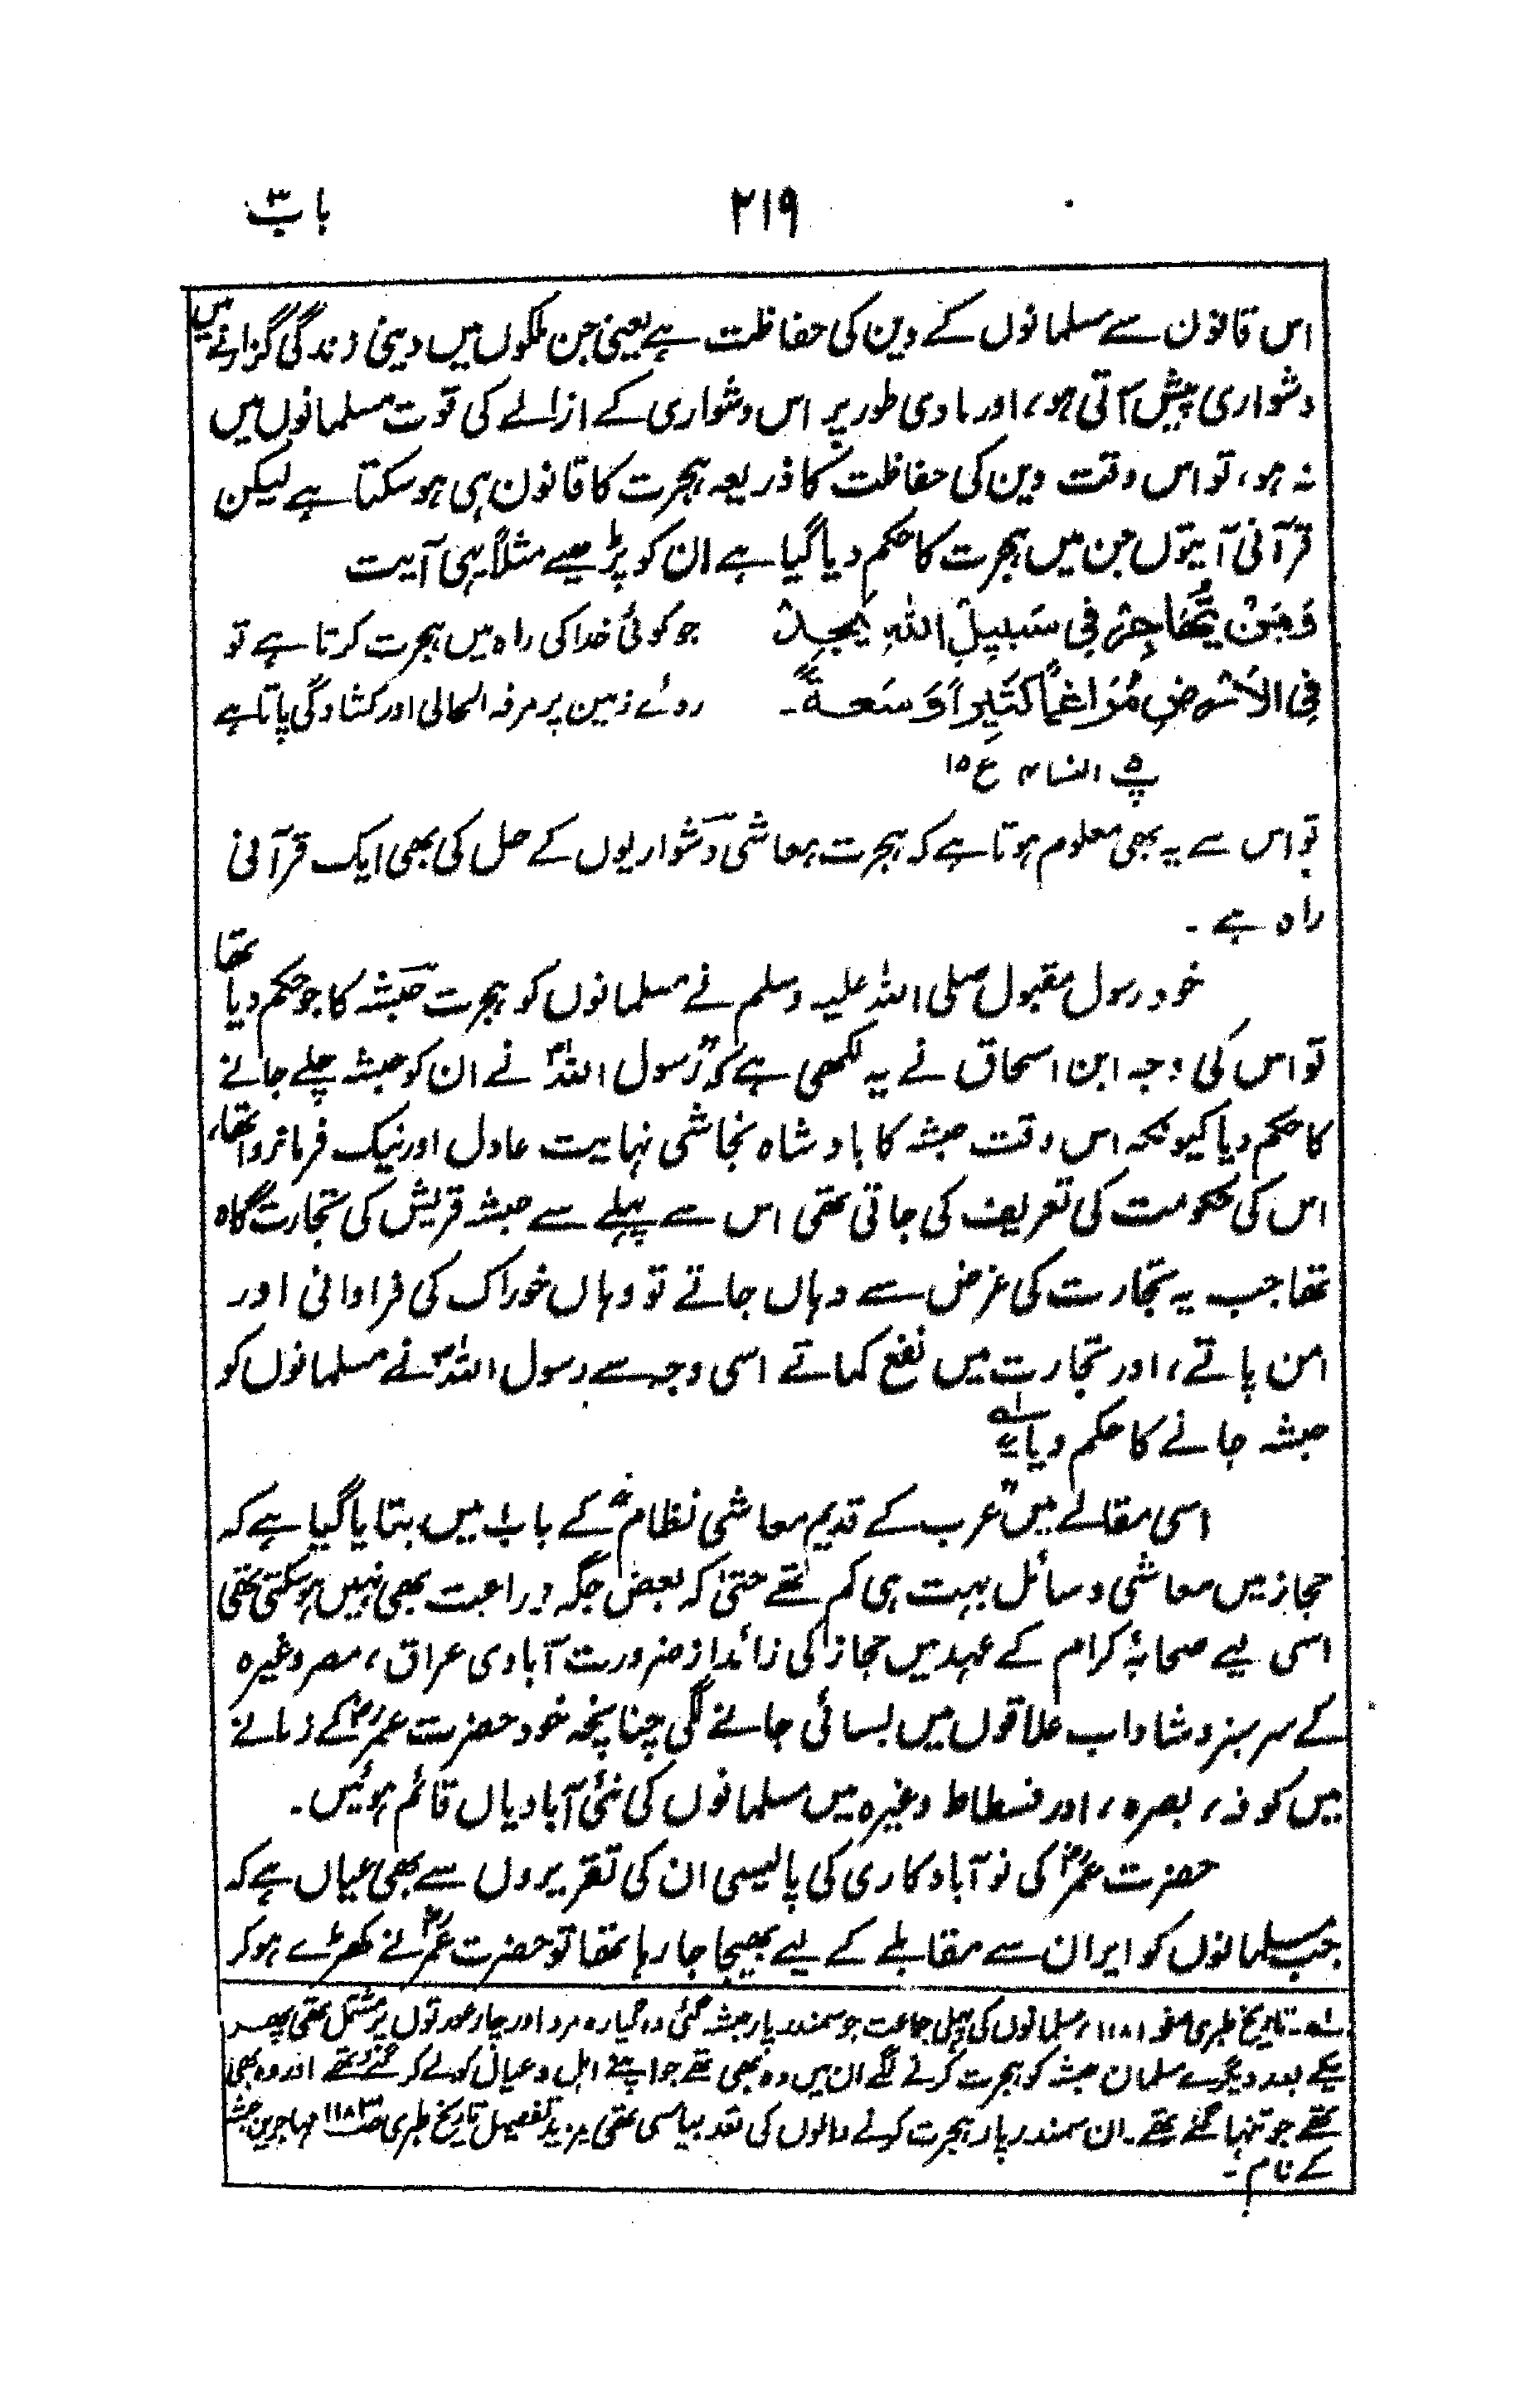 باب ۳
۲۱۹
اس قانون سے مسلمانوں کے دین کی حفاظت ہے یعنی جن ملکوں میں دینی زندگی گزارنے میں
دشواری پیش آتی ہو، اور مادی طور پر اس دشواری کے ازالے کی قوت مسلمانوں میں
نہ ہو، تو اس وقت دین کی حفاظت کا ذریعہ ہجرت کا قانون ہی ہو سکتا ہے لیکن
قرآنی آیتوں جن میں ہجرت کا حکم دیا گیا ہے ان کو پڑھیے مثلاً یہی آیت
وَمَنْ يُّهَاجِرْ فِي سَبِيلِ اللّٰهِ يَجِدْ
فِي الْاَرْضِ مُرَاغَمًا كَثِيرًا وَّسَعَةً۔
جو کوئی خدا کی راہ میں ہجرت کرتا ہے تو
روئے زمین پر مرفہ الحالی اور کشادگی پاتا ہے
پ ۵ النساء ۴ ع ۱۵
تو اس سے یہ بھی معلوم ہوتا ہے کہ ہجرت معاشی دشواریوں کے حل کی بھی ایک قرآنی
راہ ہے ۔
خود رسول مقبول صلی اللہ علیہ وسلم نے مسلمانوں کو ہجرت حبشہ کا جو حکم دیا تھا
تو اس کی وجہ ابن اسحاق نے یہ لکھی ہے کہ "رسول اللہؐ نے ان کو حبشہ چلے جانے
کا حکم دیا کیونکہ اس وقت حبشہ کا بادشاہ نجاشی نہایت عادل اور نیک فرمانروا تھا،
اس کی حکومت کی تعریف کی جاتی تھی اس سے پہلے سے حبشہ قریش کی تجارت گاہ
تھا جب یہ تجارت کی غرض سے وہاں جاتے تو وہاں خوراک کی فراوانی اور
امن پاتے، اور تجارت میں نفع کماتے اسی وجہ سے رسول اللہؐ نے مسلمانوں کو
حبشہ جانے کا حکم دیا"۔ لہ
اسی مقالے میں "عرب کے قدیم معاشی نظام" کے باب ۱ میں بتایا گیا ہے کہ
حجاز میں معاشی وسائل بہت ہی کم تھے حتیٰ کہ بعض جگہ زراعت بھی نہیں ہو سکتی تھی
اسی لیے صحابۂ کرام کے عہد میں حجاز کی زائد از ضرورت آبادی عراق، مصر وغیرہ
کے سرسبز و شاداب علاقوں میں بسائی جانے لگی چنانچہ خود حضرت عمرؓ کے زمانے
میں کوفہ، بصرہ، اور فسطاط وغیرہ میں مسلمانوں کی نئی آبادیاں قائم ہوئیں۔
حضرت عمرؓ کی نوآبادکاری کی پالیسی ان کی تقریروں سے بھی عیاں ہے کہ
جب مسلمانوں کو ایران سے مقابلے کے لیے بھیجا جا رہا تھا تو حضرت عمرؓ نے کھڑے ہو کر
لہ ۔ تاریخ طبری صفحہ ۱۱۸۱، مسلمانوں کی پہلی جماعت جو سمندر پار حبشہ گئی وہ گیارہ مرد اور چار عورتوں پر مشتمل تھی پھر
یکے بعد دیگرے مسلمان حبشہ کو ہجرت کرنے لگے ان میں وہ بھی تھے جو اپنے اہل و عیال کو لے کر گئے تھے اور وہ بھی
تھے جو تنہا گئے تھے۔ ان سمندر پار ہجرت کرنے والوں کی تعداد بیاسی تھی مزید تفصیل تاریخ طبری ص ۱۱۸۳ مہاجرین حبشہ
کے نام ۔